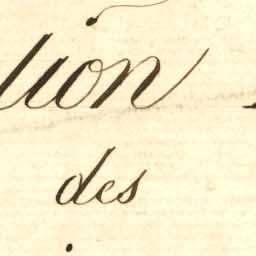 tion
des